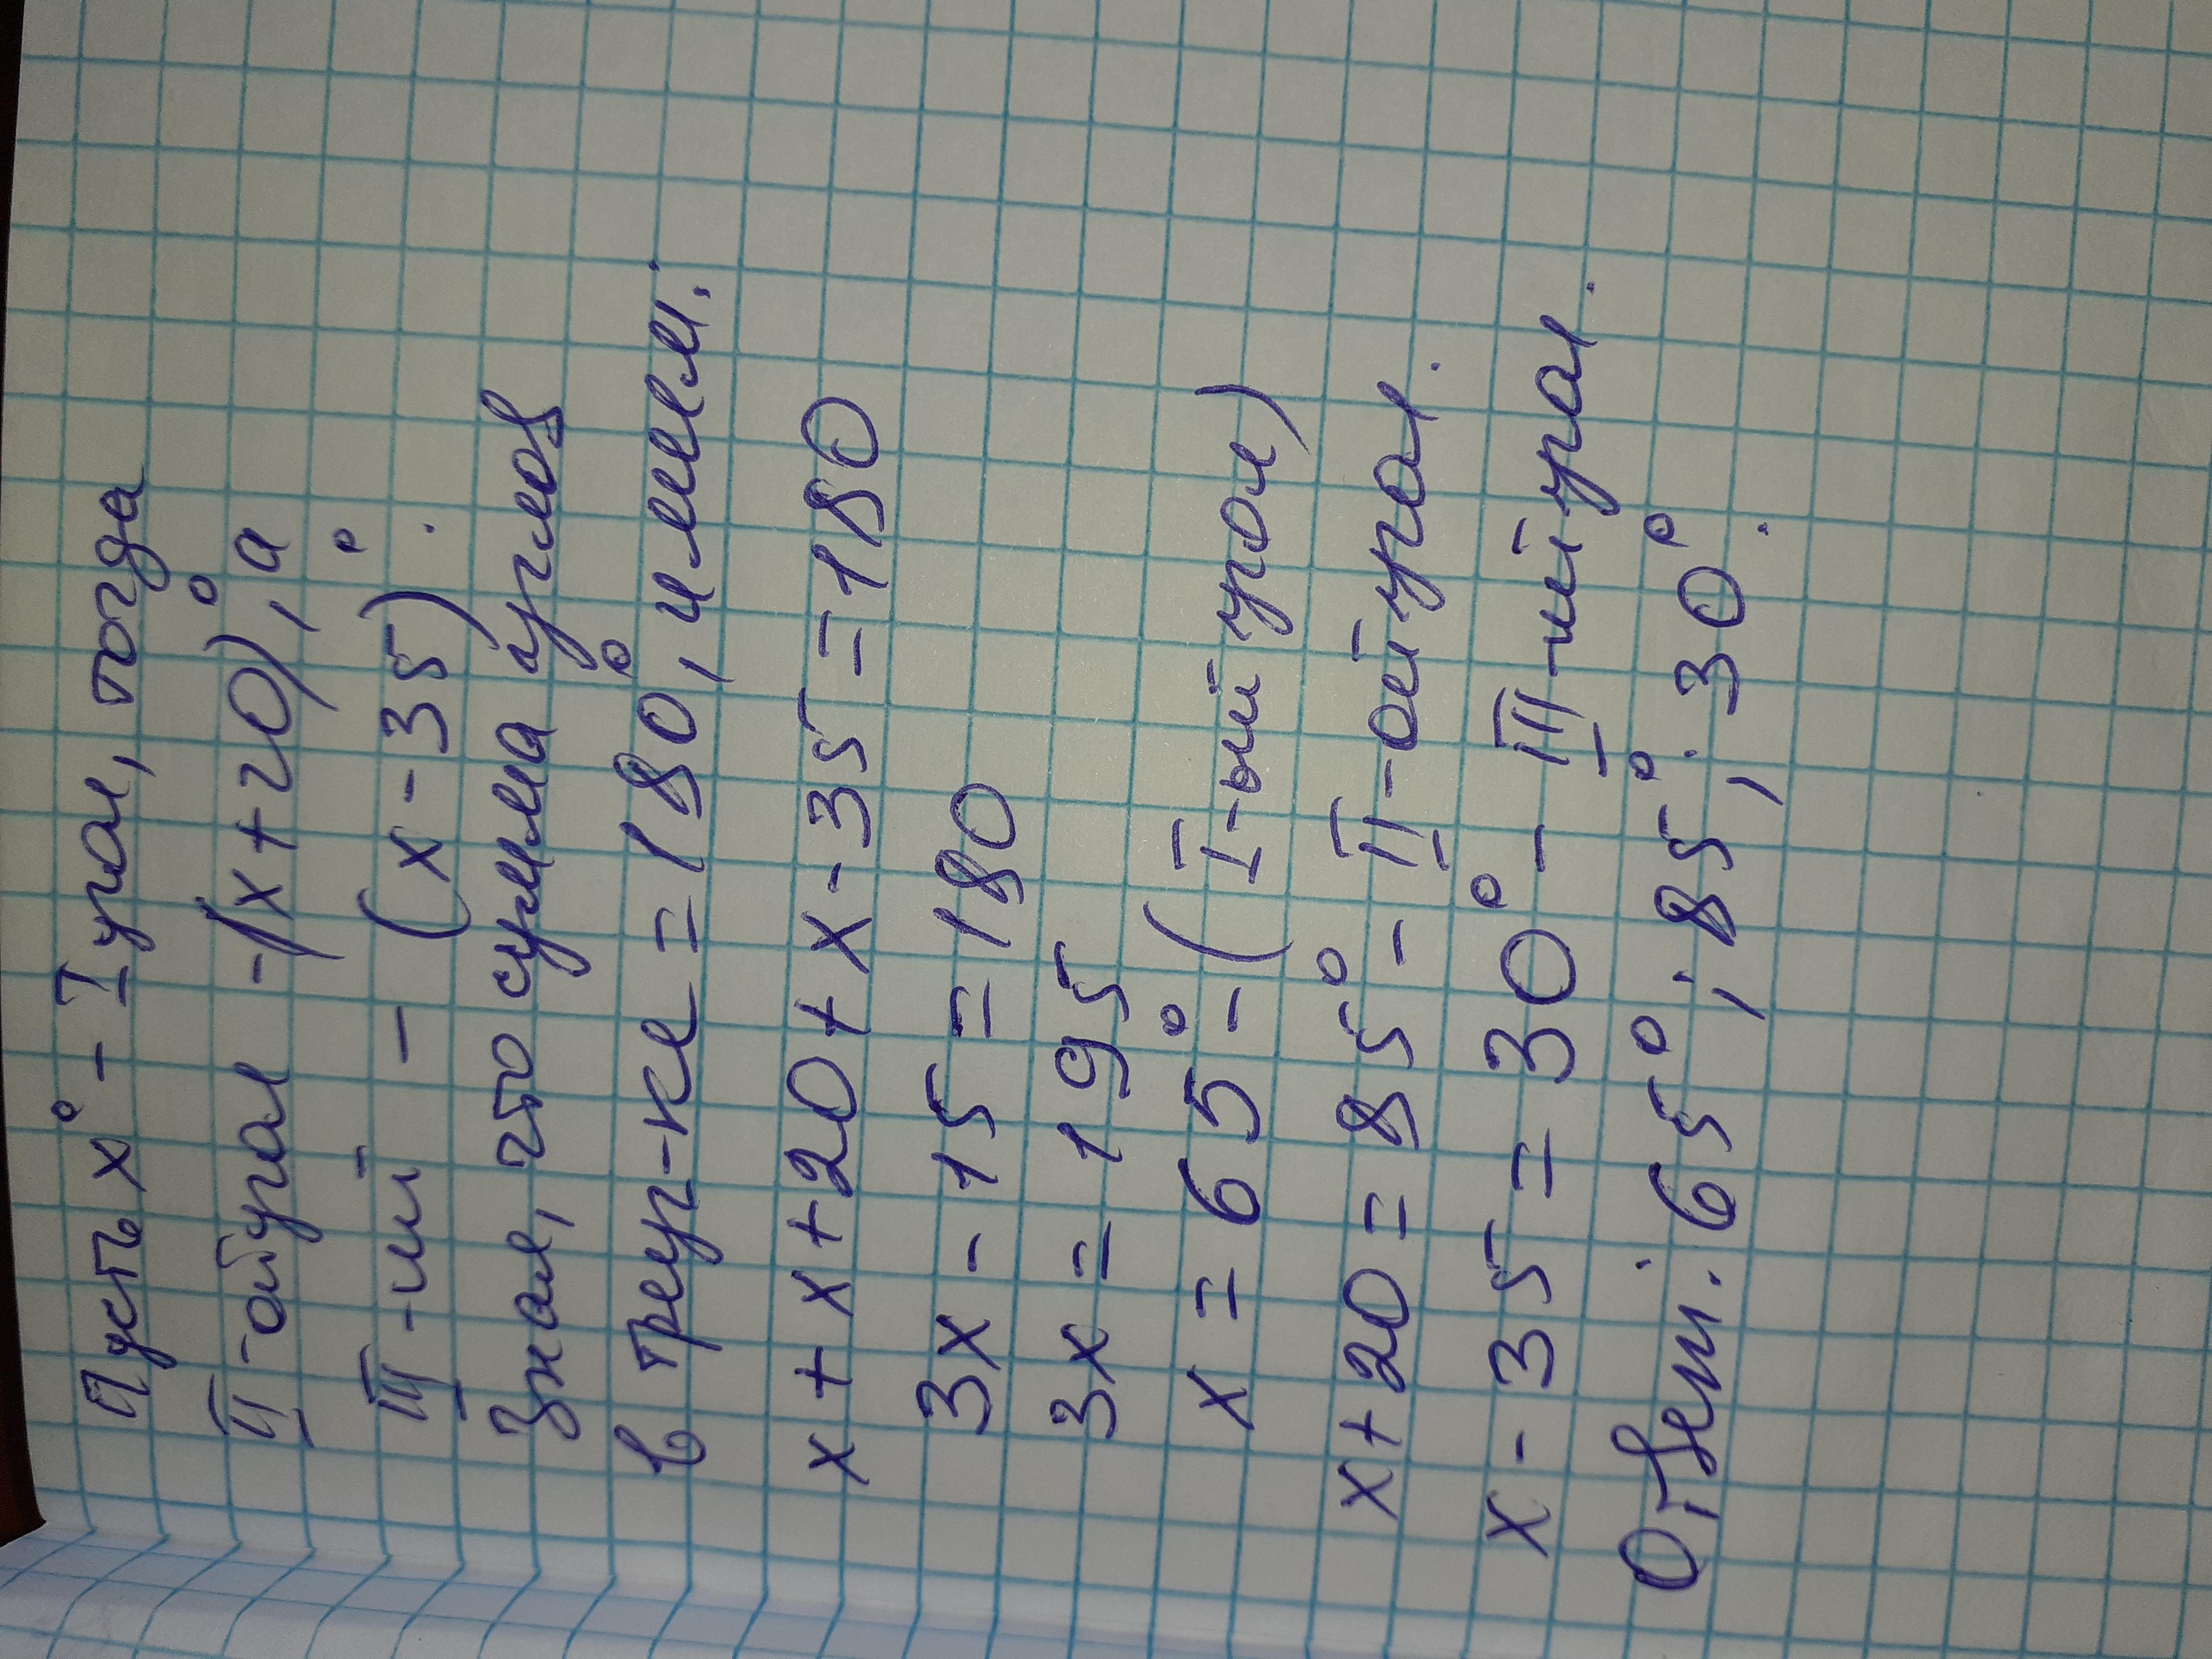 Пусть x° - I угол, тогда
II-ой угол - (x+20)°, а
III-ий - (x-35)°.
Зная, что сумма углов
в треуг-ке = 180°, имеем:
x+x+20+x-35=180
3x-15=180
3x=195
x=65°-(I-ый угол)
x+20=85°-II-ой угол.
x-35=30°-III-ий угол.
Ответ: 65°; 85°; 30°.